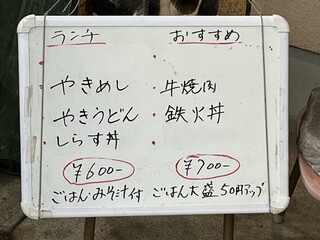 ランチ
やきめし
やきうどん
しらす丼
¥600-
ごはん・みそ汁付
おすすめ
・牛焼肉
・鉄火丼
¥900-
ごはん大盛 50円アップ